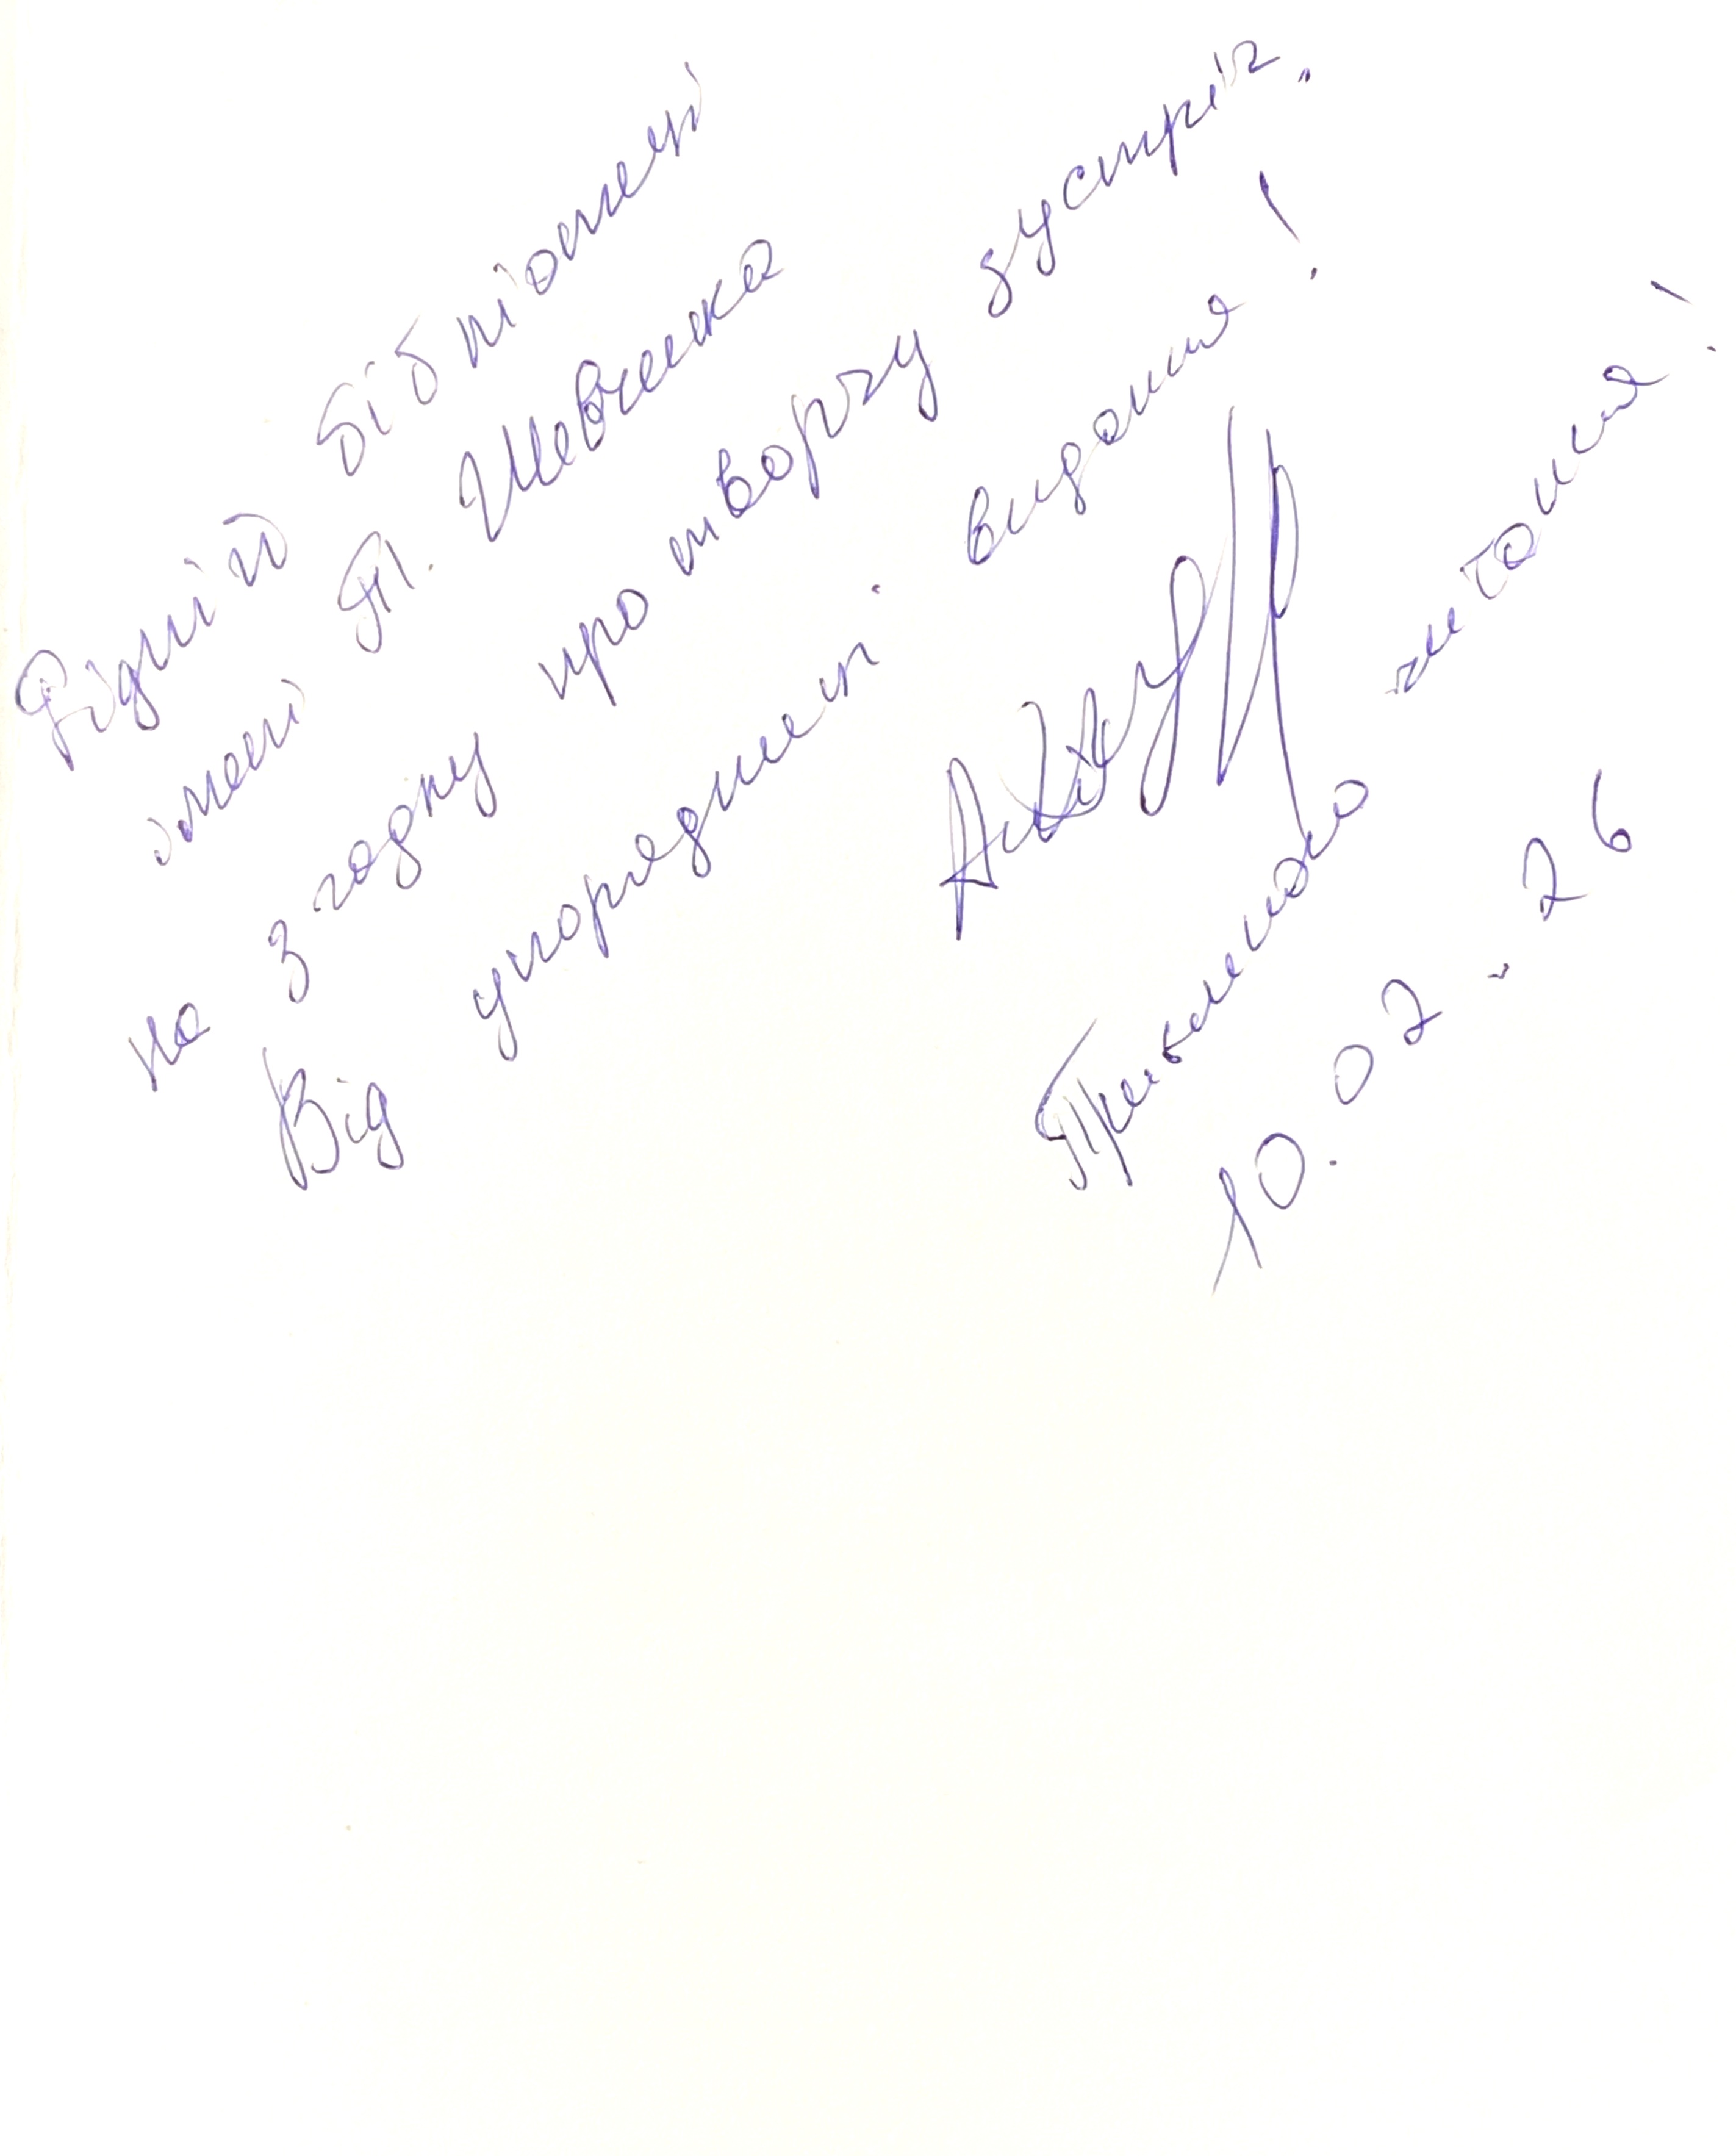 Рідній бібліотеці
імені Т. Шевченка
на згадку про творчу зустріч.
Від упорядниці видання!
Приємного читання!
10.02-26